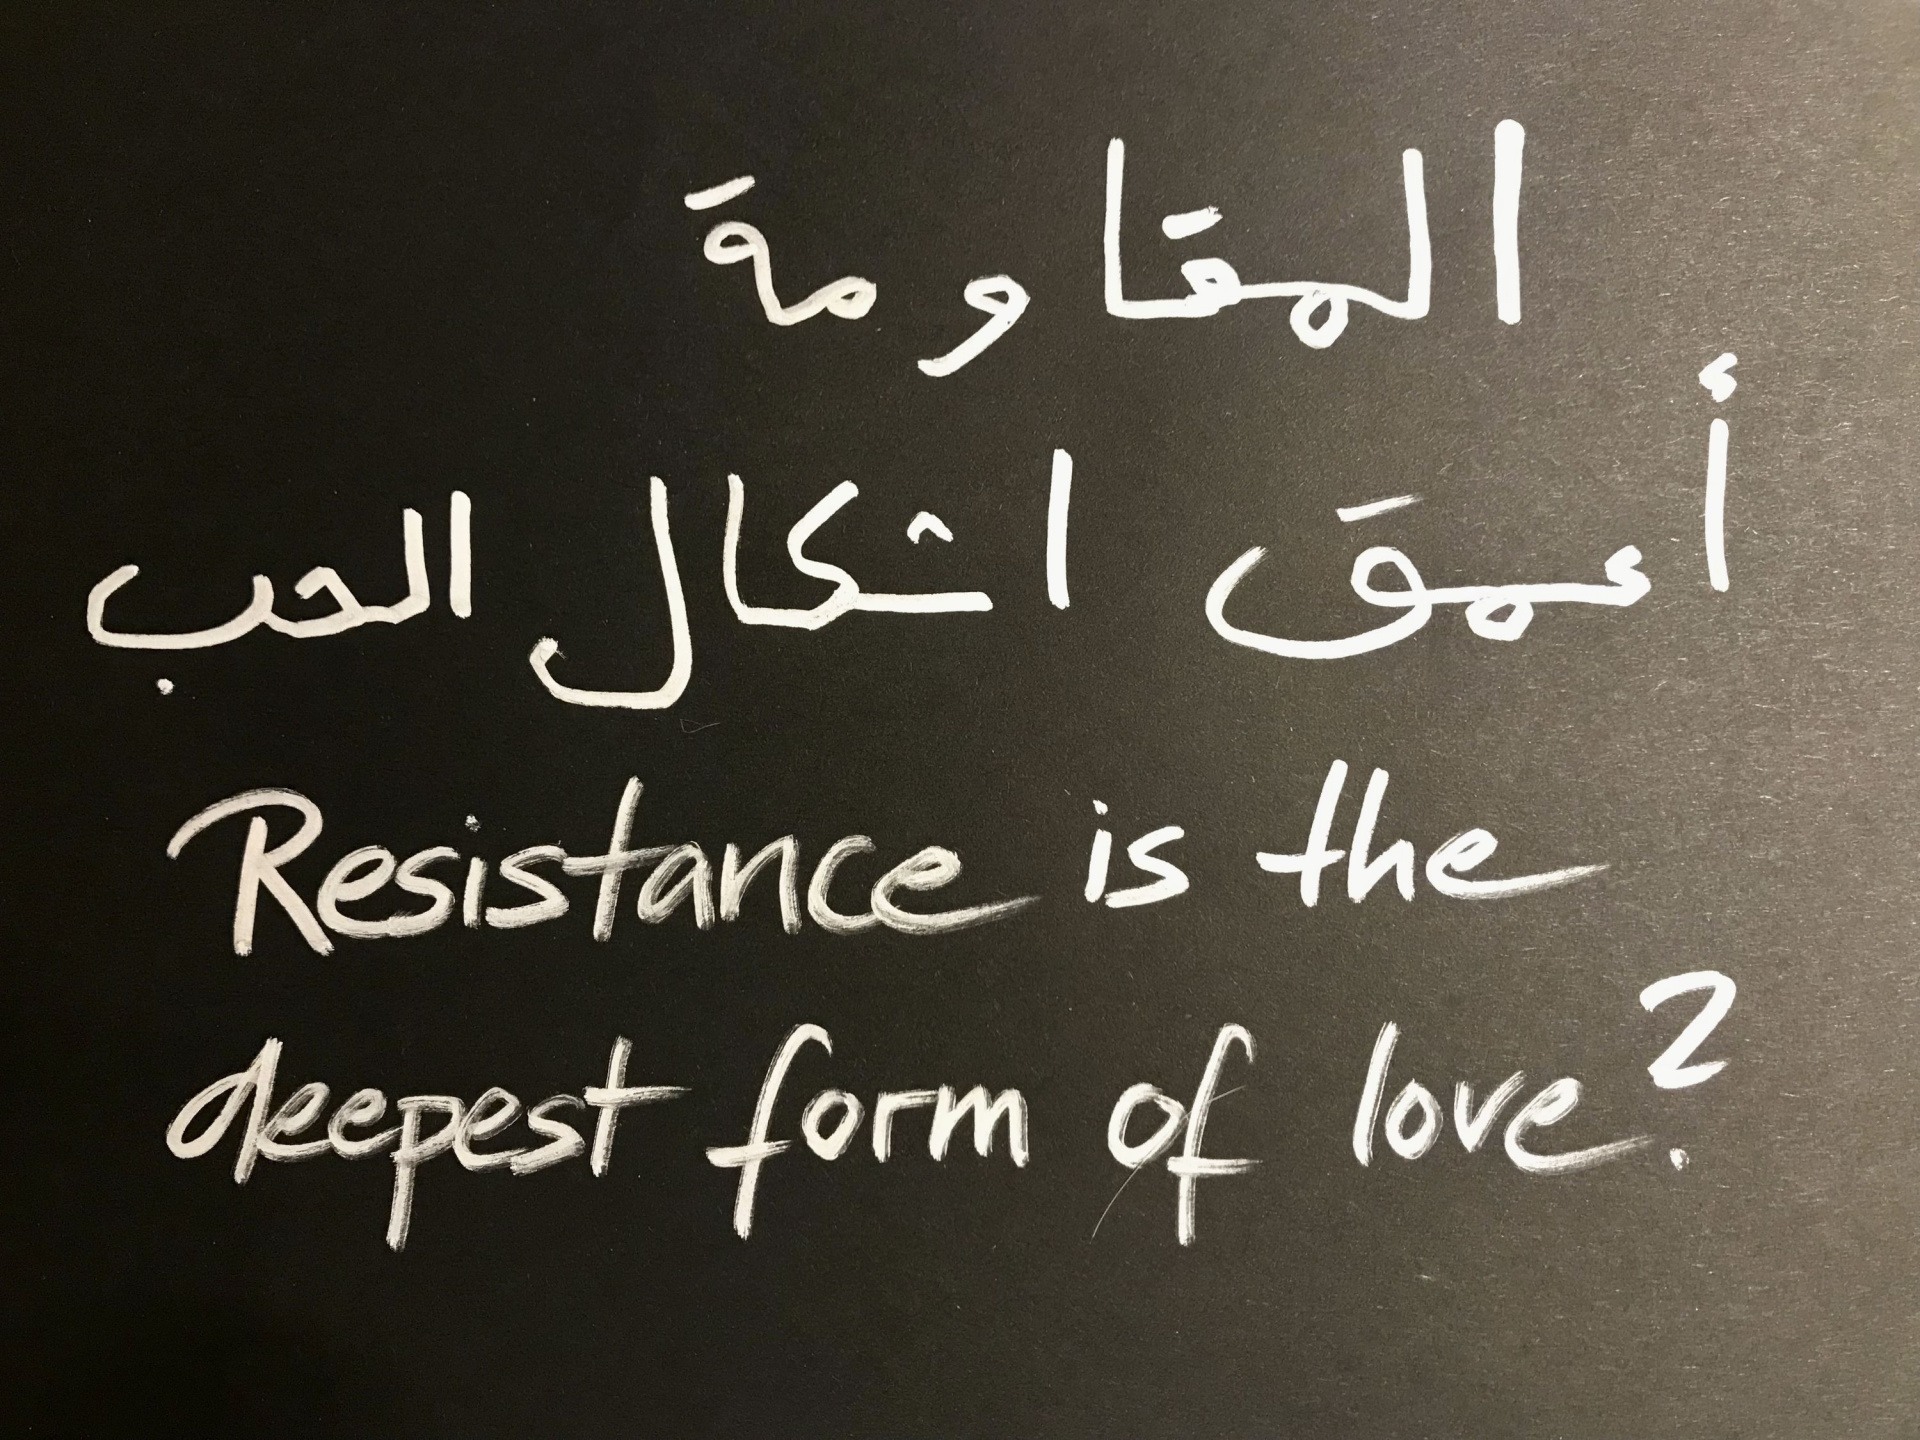 المقاومة
أعمق اشكال الحب
Resistance is the
deepest form of love?